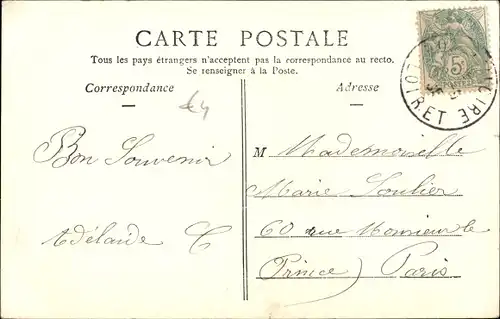 CARTE POSTALE
Tous les pays étrangers n'acceptent pas la correspondance au recto.
Se renseigner à la Poste.
Correspondance
Adresse
Bon Souvenir
Adélaide C
M Mademoiselle
Marie Soulier
60 rue Monsieur le
Prince) Paris
5c
LOIRET